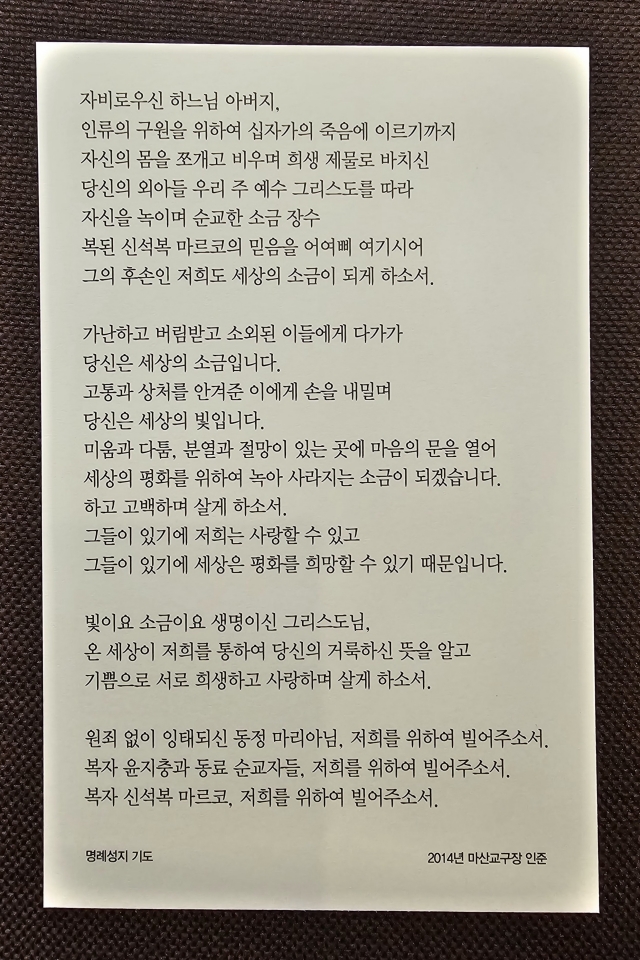 자비로우신 하느님 아버지,
인류의 구원을 위하여 십자가의 죽음에 이르기까지
자신의 몸을 쪼개고 비우며 희생 제물로 바치신
당신의 외아들 우리 주 예수 그리스도를 따라
자신을 녹이며 순교한 소금 장수
복된 신석복 마르코의 믿음을 어여삐 여기시어
그의 후손인 저희도 세상의 소금이 되게 하소서.
가난하고 버림받고 소외된 이들에게 다가가
당신은 세상의 소금입니다.
고통과 상처를 안겨준 이에게 손을 내밀며
당신은 세상의 빛입니다.
미움과 다툼, 분열과 절망이 있는 곳에 마음의 문을 열어
세상의 평화를 위하여 녹아 사라지는 소금이 되겠습니다.
하고 고백하며 살게 하소서.
그들이 있기에 저희는 사랑할 수 있고
그들이 있기에 세상은 평화를 희망할 수 있기 때문입니다.
빛이요 소금이요 생명이신 그리스도님,
온 세상이 저희를 통하여 당신의 거룩하신 뜻을 알고
기쁨으로 서로 희생하고 사랑하며 살게 하소서.
원죄 없이 잉태되신 동정 마리아님, 저희를 위하여 빌어주소서.
복자 윤지충과 동료 순교자들, 저희를 위하여 빌어주소서.
복자 신석복 마르코, 저희를 위하여 빌어주소서.
명례성지 기도
2014년 마산교구장 인준